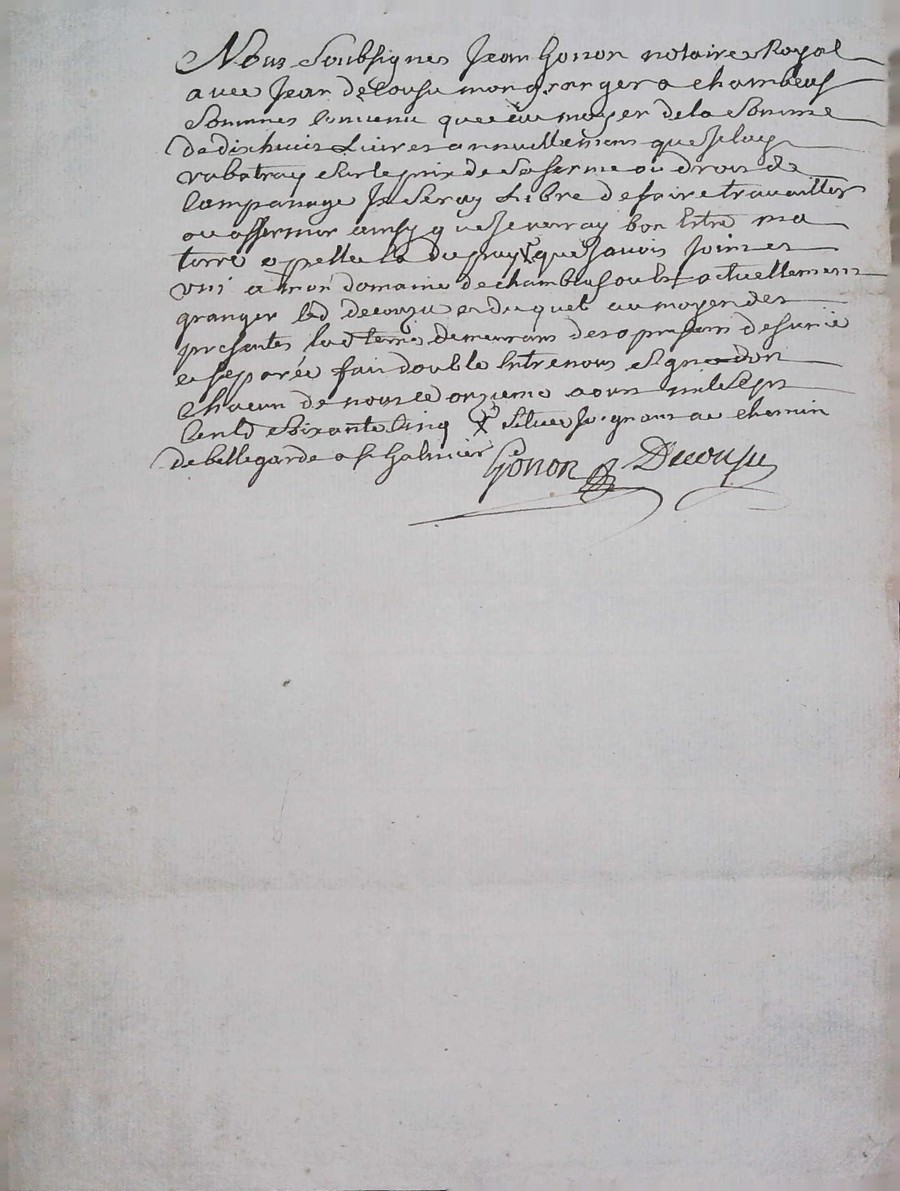 Nous Soubsignes Jean Gonon notaires Royal
avec Jean decousu mon granger a chambeuf
Sommes Convenu que au moyen de la Somme
de dix huis Livres annuellemans que je luy
rabatray sur le prix de sa ferme ou drois de
Companage Je Seray Libre de faire travailler
ou affermer ainsy que je verray bon Estre ma
terre appellée la du puy X que J'avois Joint et
uni a mon domaine de chambeuf ou est actuellemans
granger led decousu en duquel au moyen des
presantes lad terre demeurans des a presans desunie
et separée fait double Entre nous signé d'on
chacun de nous ce onzieme aoust mil sept
Cents soixante Cinq X Située Joignans au chemin
de bellegarde a st Galmier Gonon Decousu